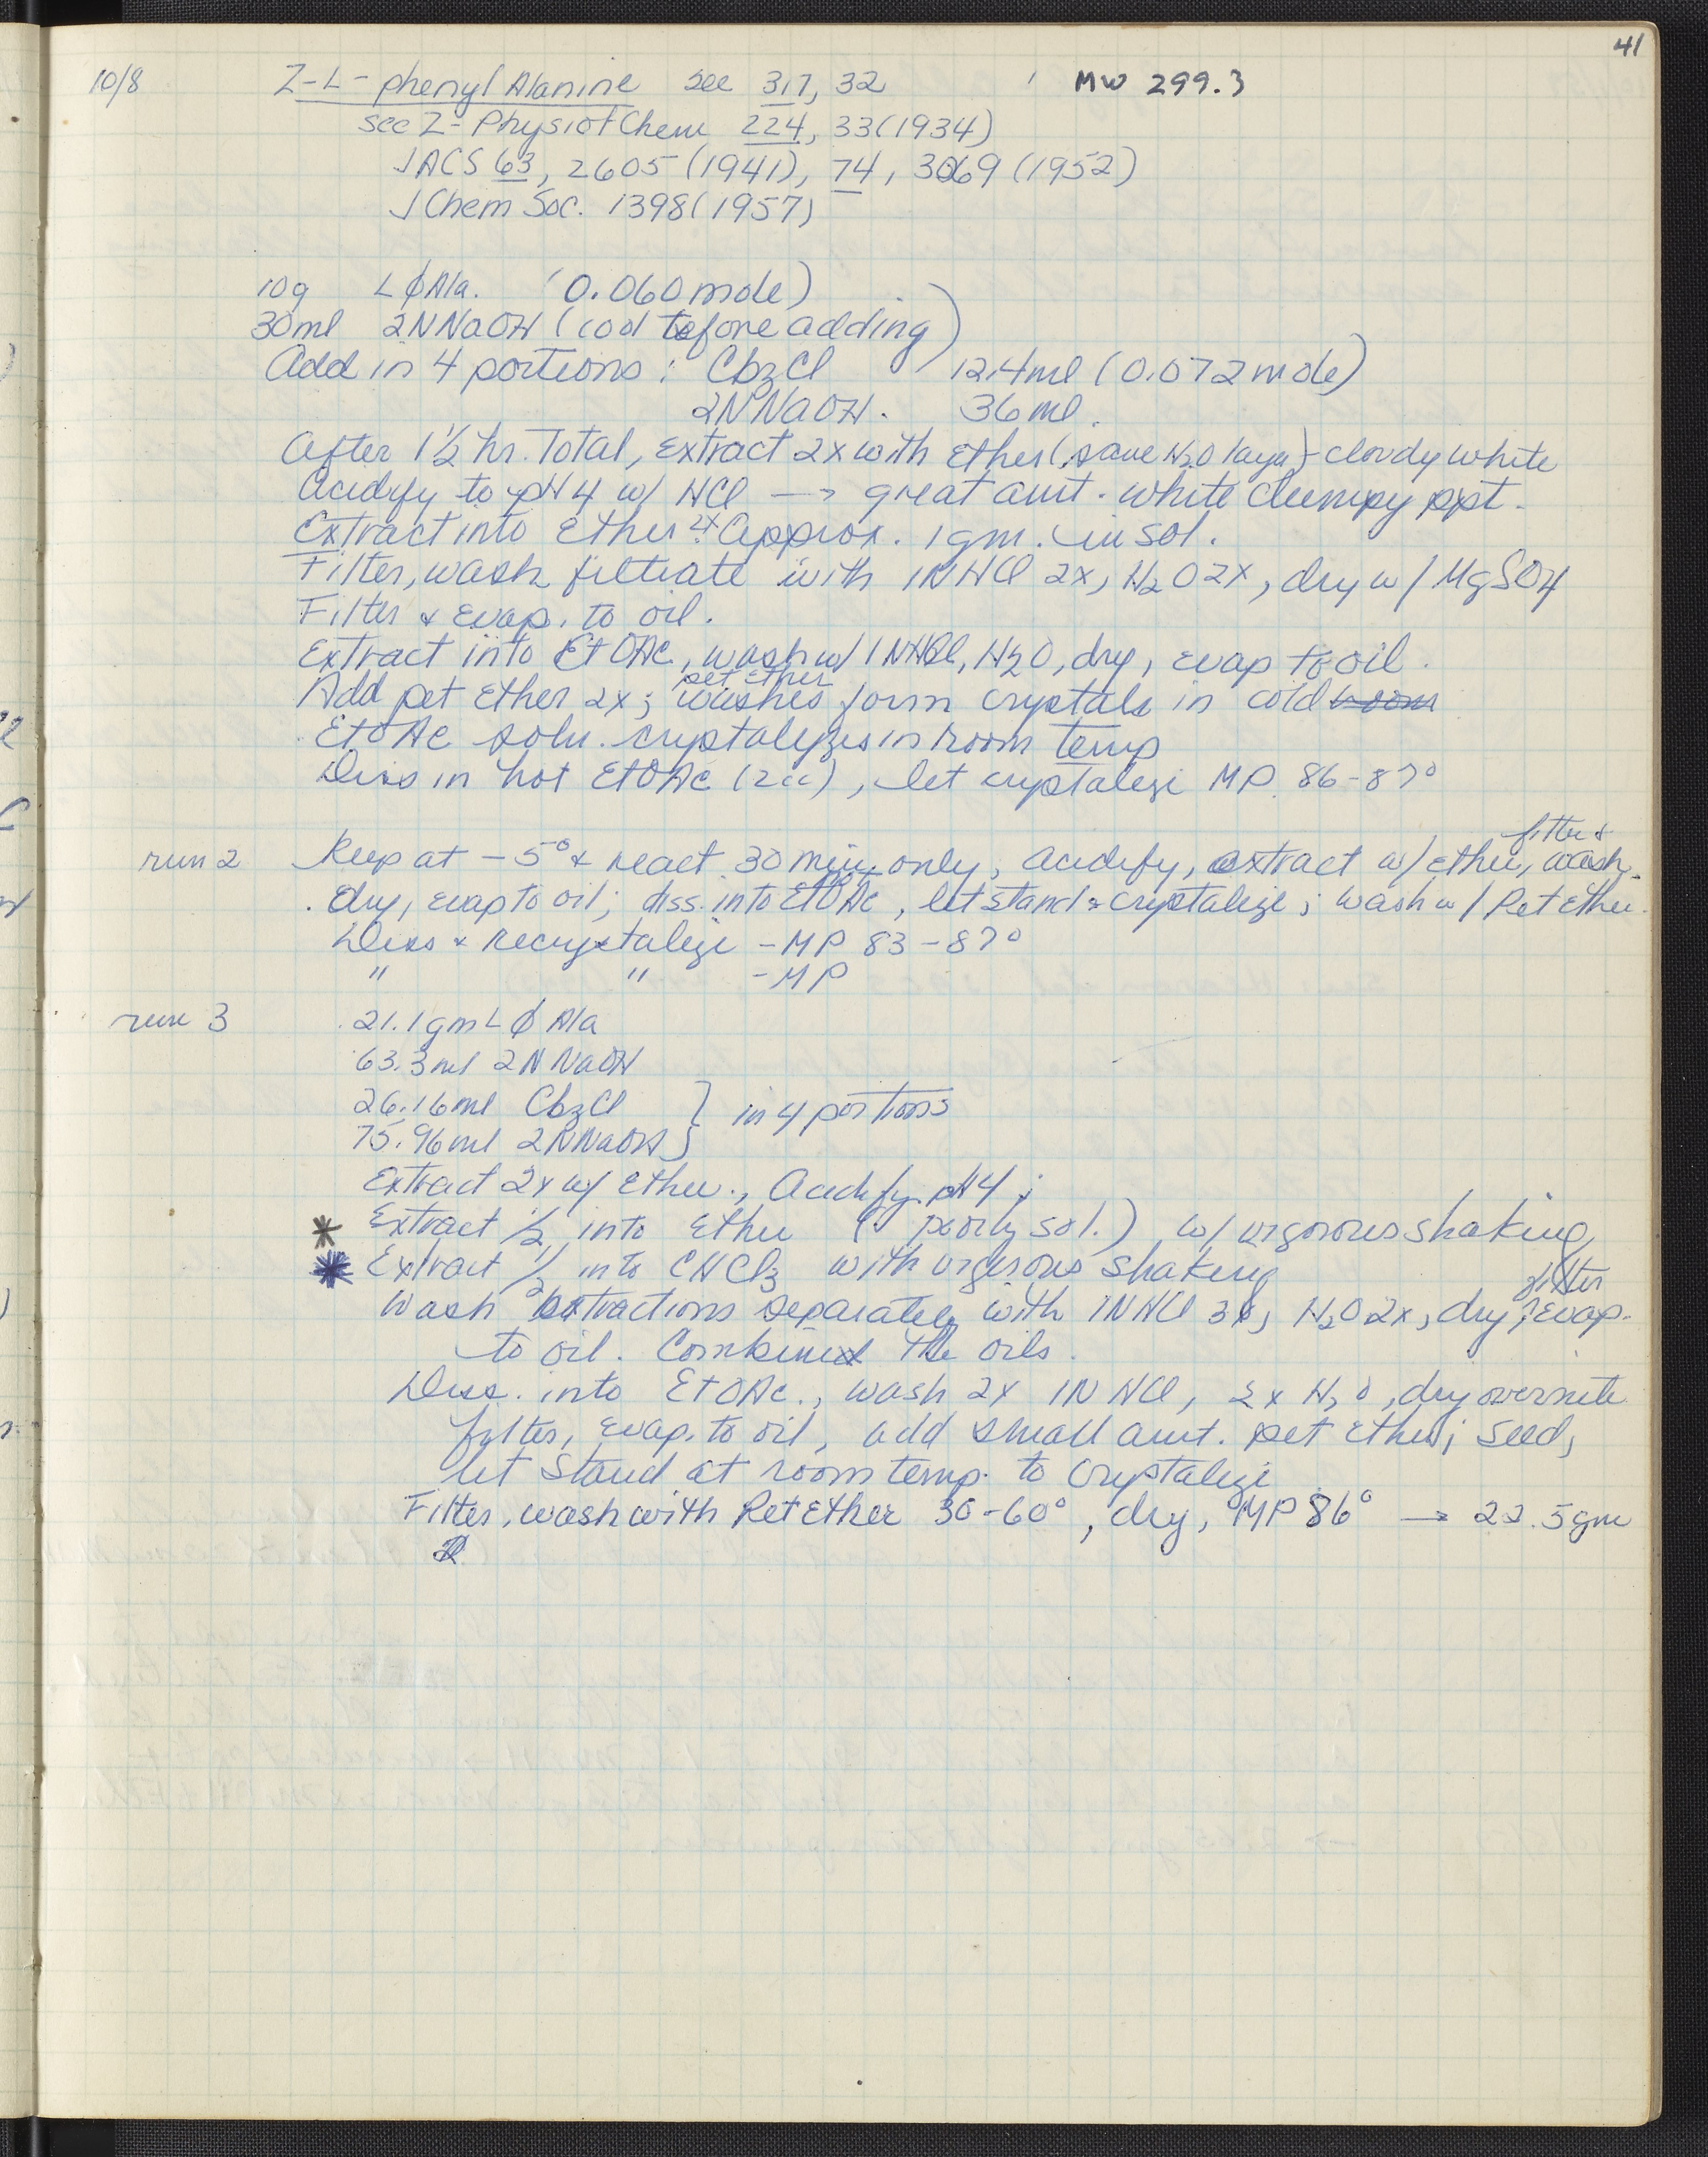 41
10/8 Z-L-phenyl Alanine see 317, 32 MW 299.3
see Z-Physiol Chem 224, 33 (1934)
JACS 63, 2605 (1941), 74, 3069 (1952)
J Chem Soc. 1398 (1957)
10g L ϕ Ala. (0.060 mole)
30ml 2N NaOH (cool before adding)
Add in 4 portions: CbzCl 12.4ml (0.072 mole)
2N NaOH. 36 ml.
After 1½ hr. Total, extract 2x with ether (save H2O layer) - cloudy white
Acidify to pH 4 w/ HCl → great amt. white clumpy ppt.
Extract into ether 2x. Approx. 1 gm. insol.
Filter, wash filtrate with 1N HCl 2x, H2O 2x, dry w/ MgSO4
Filter & evap. to oil.
Extract into EtOAc, wash w/ 1N HCl, H2O, dry, evap to oil.
pet ether
Add pet ether 2x; washes form crystals in cold room
EtOAc soln. crystalyzes in room temp
Diss in hot EtOAc (2cc), let crystalize MP. 86-87°
filter &
run 2 Keep at -5° & react 30 min only, acidify, extract w/ ether, wash,
dry, evap to oil; diss. into EtOAc, let stand & crystalize; wash w/ Pet ether.
Diss & recrystalize - MP 83-87°
" " - MP
run 3 21.1 gm L ϕ Ala
63.3 ml 2N NaOH
26.16 ml CbzCl } in 4 portions
75.96 ml 2N NaOH
Extract 2x w/ ether., Acidify pH 4;
* Extract ½ into ether (poorly sol.) w/ vigorous shaking
* Extract ½ into CHCl3 with vigorous shaking
filter
Wash extractions separately with 1N HCl 3x, H2O 2x, dry, evap.
to oil. Combined the oils.
Diss. into EtOAc., wash 2x 1N HCl, 2x H2O, dry overnite
filter, evap. to oil, add small amt. pet ether; seed,
let stand at room temp. to crystalize
Filter, wash with Pet Ether 30-60°, dry, MP 86° → 22.5 gm